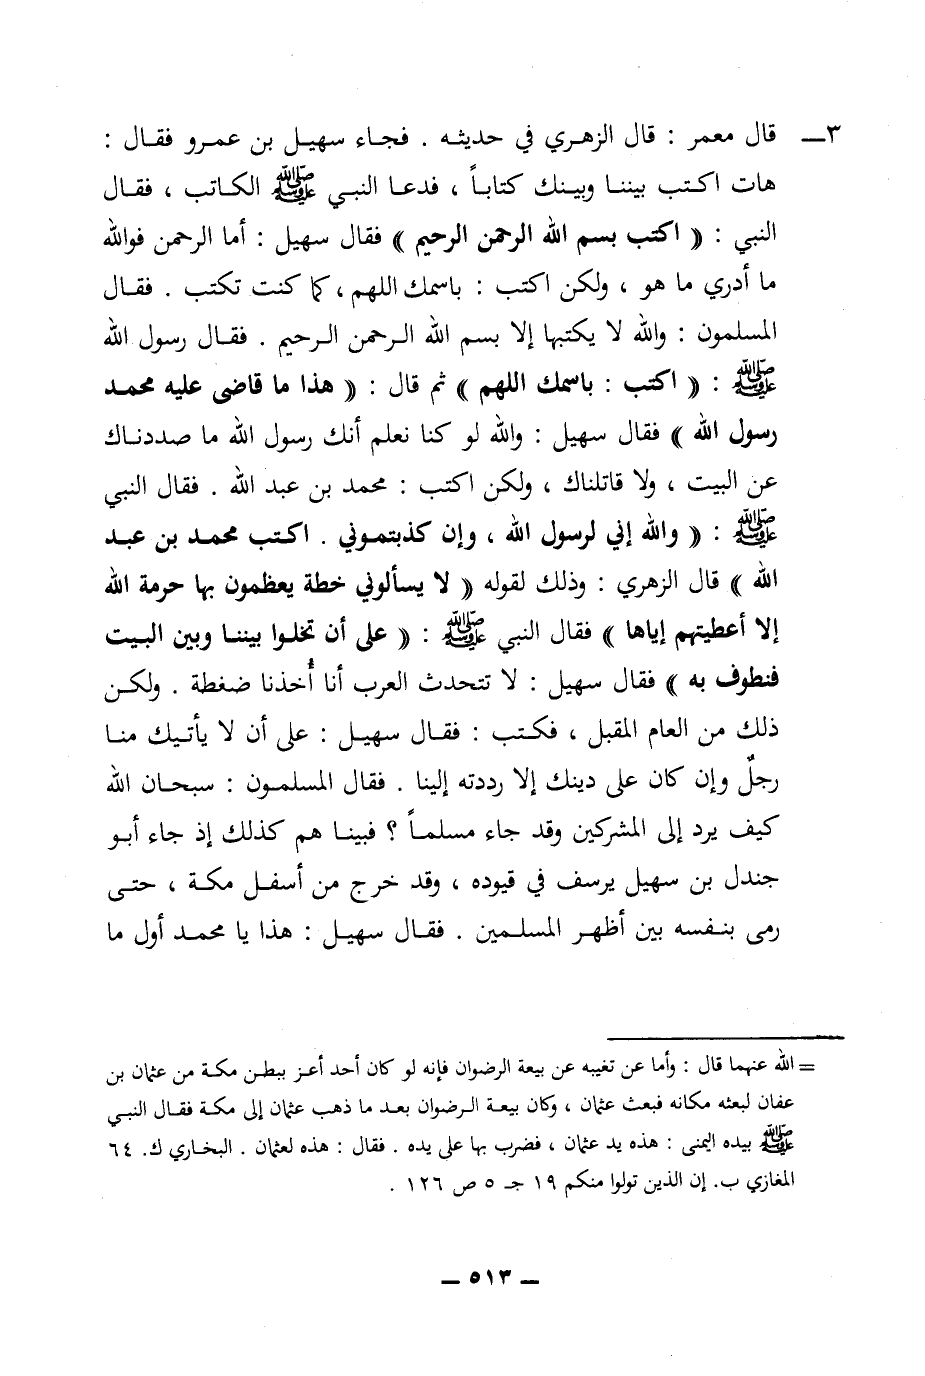 ٣ــ قال معمر : قال الزهري في حديثه . فجاء سهيل بن عمرو فقال :
هات اكتب بيننا وبينك كتاباً ، فدعا النبي ﷺ الكاتب ، فقال
النبي : « اكتب بسم الله الرحمن الرحيم » فقال سهيل : أما الرحمن فوالله
ما أدري ما هو ، ولكن اكتب : باسمك اللهم ، كما كنت تكتب . فقال
المسلمون : والله لا يكتبها إلا بسم الله الرحمن الرحيم . فقال رسول الله
ﷺ : « اكتب : باسمك اللهم » ثم قال : « هذا ما قاضى عليه محمد
رسول الله » فقال سهيل : والله لو كنا نعلم أنك رسول الله ما صددناك
عن البيت ، ولا قاتلناك ، ولكن اكتب : محمد بن عبد الله . فقال النبي
ﷺ : « والله إني لرسول الله ، وإن كذبتموني . اكتب محمد بن عبد
الله » قال الزهري : وذلك لقوله « لا يسألوني خطة يعظمون بها حرمة الله
إلا أعطيتهم إياها » فقال النبي ﷺ : « على أن تخلوا بيننا وبين البيت
فنطوف به » فقال سهيل : لا تتحدث العرب أنا أُخذنا ضغطة . ولكن
ذلك من العام المقبل ، فكتب : فقال سهيل : على أن لا يأتيك منا
رجلٌ وإن كان على دينك إلا رددته إلينا . فقال المسلمون : سبحان الله
كيف يرد إلى المشركين وقد جاء مسلماً ؟ فبينا هم كذلك إذ جاء أبو
جندل بن سهيل يرسف في قيوده ، وقد خرج من أسفل مكة ، حتى
رمى بنفسه بين أظهر المسلمين . فقال سهيل : هذا يا محمد أول ما
= الله عنهما قال : وأما عن تغيبه عن بيعة الرضوان فإنه لو كان أحد أعز ببطن مكة من عثمان بن
عفان لبعثه مكانه فبعث عثمان ، وكان بيعة الرضوان بعد ما ذهب عثمان إلى مكة فقال النبي
ﷺ بيده اليمنى : هذه يد عثمان ، فضرب بها على يده . فقال : هذه لعثمان . البخاري ك. ٦٤
المغازي ب. إن الذين تولوا منكم ١٩ جـ ٥ ص ١٢٦ .
ــ ٥١٣ ــ